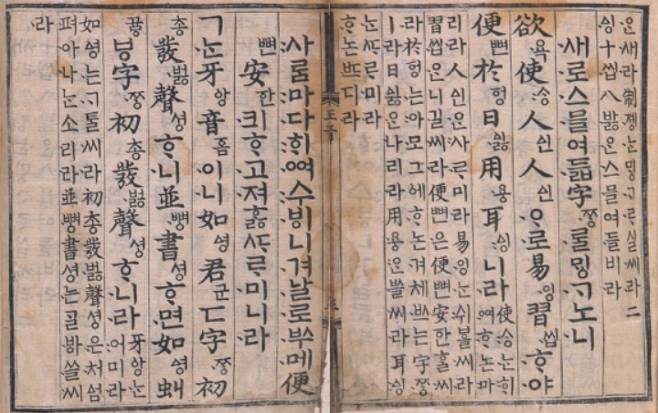 ᄋᆞᆫ새라制졩ᄂᆞᆫᄆᆡᇰᄀᆞᄅᆞ실씨라二
ᅀᅵᆼ十씹八바ᇙ은스믈여들비라
새로스믈여듧字ᄍᆞᆼᄅᆞᆯᄆᆡᇰᄀᆞ노니
欲욕使ᄉᆞᆼ人ᅀᅵᆫ人ᅀᅵᆫᄋᆞ로易잉習씹ᄒᆞ야
便뼌於ᅙᅥᆼ日ᅀᅵᇙ用요ᇰ耳ᅀᅵᆼ니라
使ᄉᆞᆼᄂᆞᆫᄒᆡ
ᅇᅧᄒᆞ논마
리라人ᅀᅵᆫᄋᆞᆫ사ᄅᆞ미라易잉ᄂᆞᆫ쉬ᄫᅳᆯ씨라
習씹ᄋᆞᆫ니길씨라便뼌은便뼌安ᅙᅡᆫᄒᆞᆯ씨
라於ᅙᅥᆼᄂᆞᆫ아모그ᅌᅦᄒᆞ논겨체ᄡᅳ는字ᄍᆞᆼ
ㅣ라日ᅀᅵᇙᄋᆞᆫ나리라用요ᇰᄋᆞᆫᄡᅳᆯ씨라耳ᅀᅵᆼ
ᄂᆞᆫᄯᆞᄅᆞ미라
ᄒᆞ논ᄠᅳ디라
사ᄅᆞᆷ마다ᄒᆡᅇᅧ수ᄫᅵ니겨날로ᄡᅮ메便
뼌安ᅙᅡᆫ킈ᄒᆞ고져ᄒᆞᇙᄯᆞᄅᆞ미니라
ㄱᄂᆞᆫ牙ᅌᅡᆼ音ᅙᅳᆷ이니如ᅀᅧᆼ君군ㄷ字ᄍᆞᆼ初
총發버ᇙ聲셔ᇰᄒᆞ니並뼈ᇰ書셩ᄒᆞ면如ᅀᅧᆼ虯
뀨ᇢ字ᄍᆞᆼ初총發버ᇙ聲셔ᇰᄒᆞ니라
牙ᅌᅡᆼᄂᆞᆫ
어미라
如ᅀᅧᆼ는ᄀᆞᄐᆞᆯ씨라初총發버ᇙ聲셔ᇰ은처ᅀᅥᆷ
펴아나ᄂᆞᆫ소리라並뼈ᇰ書셩는ᄀᆞᆯᄫᅡ쓸씨
라